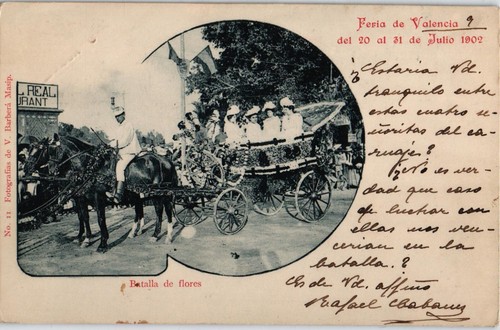 Feria de Valencia 9
del 20 al 31 de Julio 1902
No. 11 Fotografías de V. Barberá Masip.
L REAL
URANT
Batalla de flores
¿Estaria Vd.
tranquilo entre
estas cuatro se-
ñoritas del ca-
rruaje? ¿No es ver-
dad que caso
de luchar con
ellas nos ven-
cerian en la
batalla?
Es de Vd. affmo
Rafael Cabanes